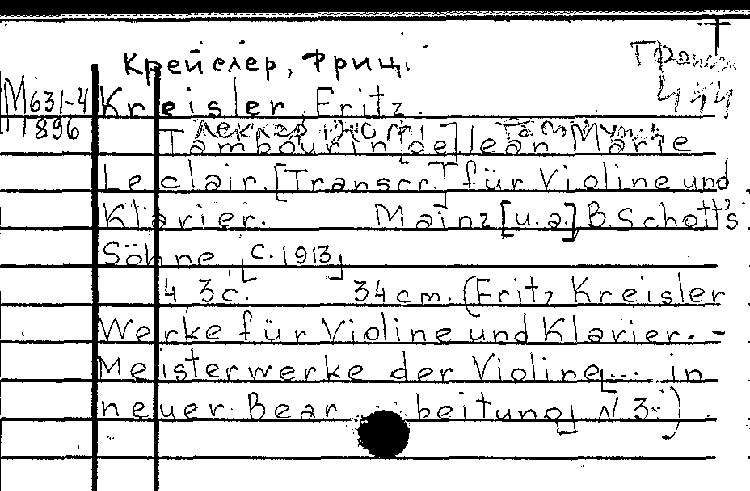 Крейслер, Фриц.
М631-4
896
Kreisler, Fritz.
Tambourin [de] Jean Marie
Leclair. [Transcr.] für Violine und
Klavier. Mainz [u.a.] B. Schott's
Söhne [c. 1913]
4 3c. 34 cm. (Fritz Kreisler
Werke für Violine und Klavier. -
Meisterwerke der Violine... in
neuer Bearbeitung N 3.)